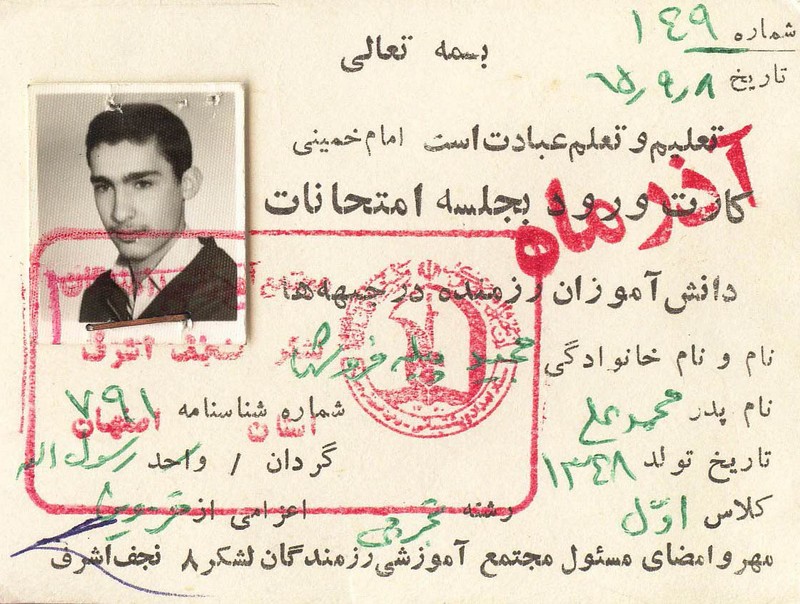 شماره ۱۴۹
تاریخ ۶۵٫۹٫۸
بسمه تعالی
تعلیم و تعلم عبادت است امام خمینی
کارت ورود بجلسه امتحانات
آذر ماه
دانش آموزان رزمنده در جبهه ها
نام و نام خانوادگی مجید پیله فروشها
نجف اشرف
نام پدر محمد علی شماره شناسنامه ۷۹۱
استان اصفهان
تاریخ تولد ۱۳۴۸ گردان / واحد رسول الله
کلاس اوّل رشته تجربی اعزامی از
مهر و امضای مسئول مجتمع آموزشی رزمندگان لشکر ۸ نجف اشرف